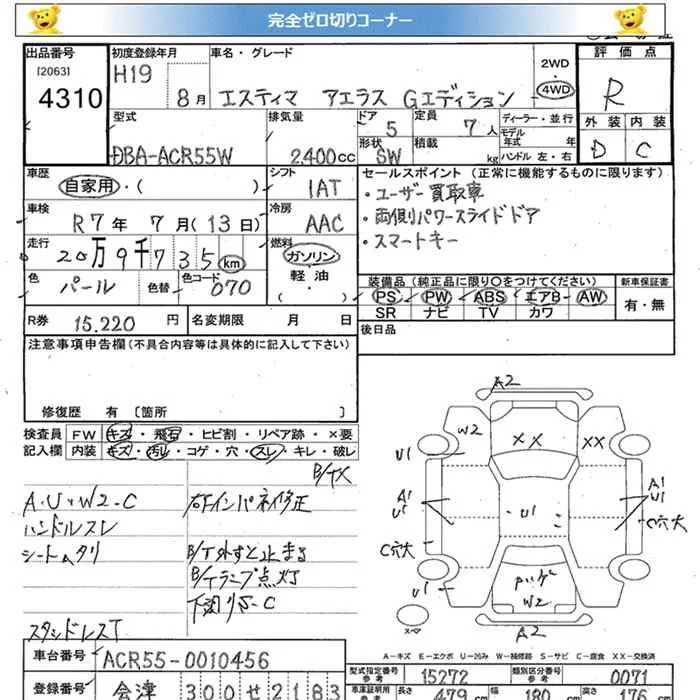 完全ゼロ切りコーナー
出品番号 初度登録年月 車名・グレード 2WD 評価点
[2063] H19 4WD R
4310 8月 エスティマ アエラス Gエディション
型式 排気量 ドア 5 定員 7人 ディーラー・並行 外装 内装
モデル年式 年式
DBA-ACR55W 2.400cc 形状 SW 積載 kg ハンドル 左・右 D C
車歴 シフト セールスポイント(正常に機能するものに限ります)
自家用・( ) IAT ・ユーザー買取車
車検 冷房 ・両側パワースライドドア
R7年 7月(13日) AAC ・スマートキー
走行 燃料
20万9千735km ガソリン
色 パール 色替 色コード 070 軽・油
( )
装備品(純正品に限り○をつけてください) 新車保証書
PS PW ABS エアB AW 有・無
SR ナビ TV カワ
R券 15.220円 名変期限 月 日 後日品
注意事項申告欄(不具合内容等は具体的に記入して下さい)
修復歴 有〔箇所 〕
検査員 FW キズ・飛石・ヒビ割・リペア跡・×要
記入欄 内装 キズ・汚れ・コゲ・穴・スレ・キレ・破レ
A.U.W2.C
ハンドルスレ
シート
右Fインパネ修正
B/T外すと止まる
B/Tランプ点灯
下廻り S-C
スタッドレスT
A2
W2 XX XX
U1
A1 U1 U1 A1 U1
C穴大 C穴大
U1
W2
スペア A2
A-キズ E-エクボ U-凹み W-補修跡 S-サビ C-腐食 XX-交換済
車台番号 ACR55-0010456
型式指定番号 参考 15272 類別区分番号 参考 0071
登録番号 会津 300せ2183
車庫証明用 参考 長さ 479cm 幅 180cm 高さ 176cm